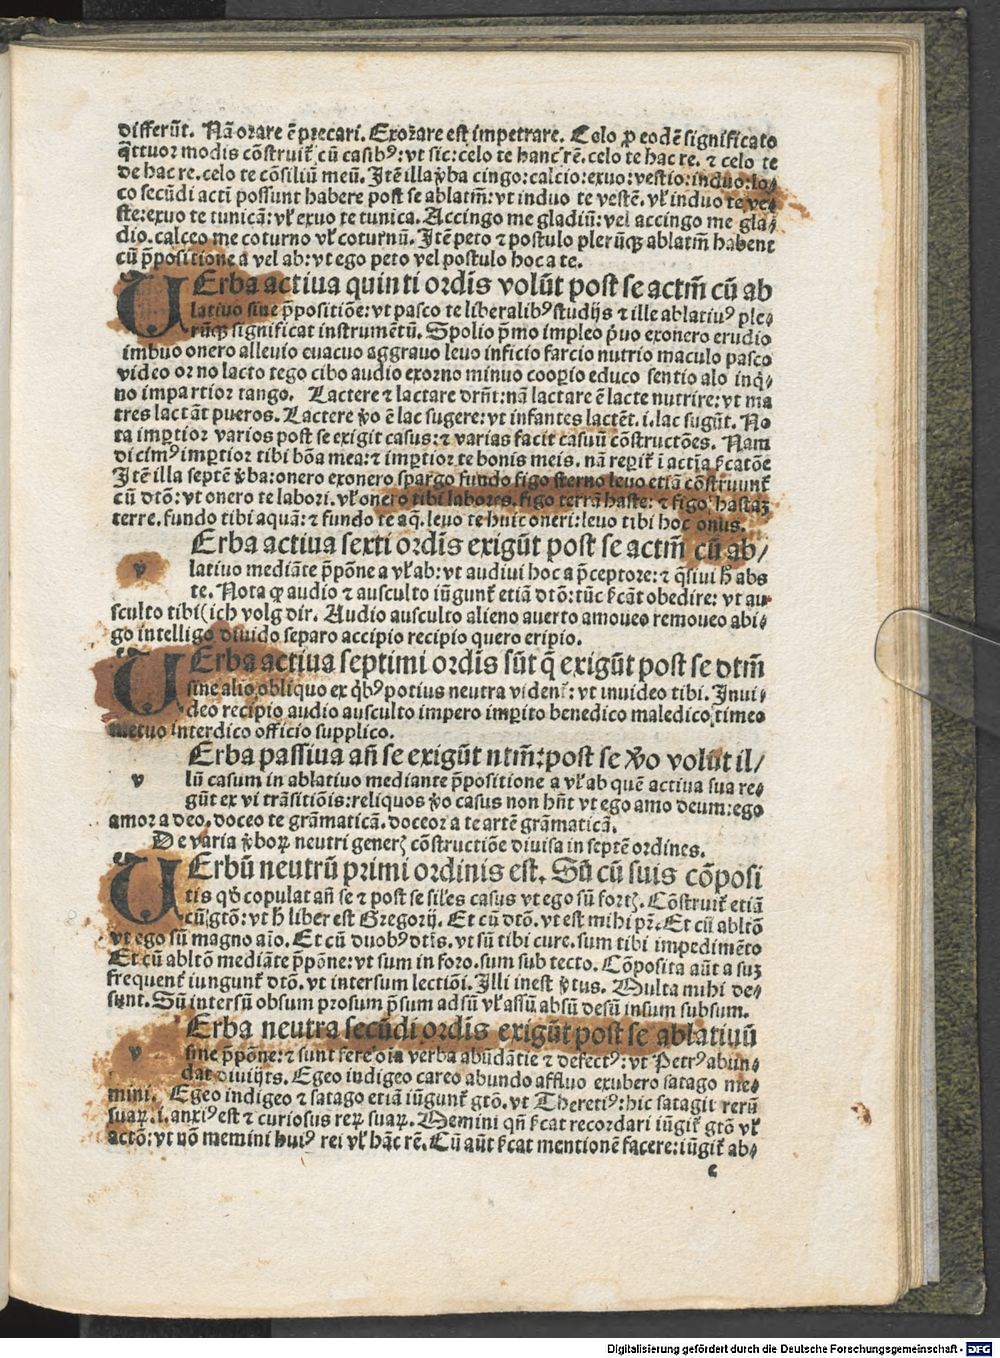 differūt. Nā orare ē precari. Exorare est impetrare. Celo ꝓ eodē significato
q̄ttuor modis cōstruit̃ cū casibꝰ: vt sic: celo te hanc rē. celo te hac re. ⁊ celo te
de hac re. celo te cōsiliū meū. Itē illa ꝟba cingo: calcio: exuo: vestio: induo: lo⸗
co secūdi acti possunt habere post se ablatm̄: vt induo te vestē. vl̓ induo te ve⸗
ste: exuo te tunicā: vl̓ exuo te tunica. Accingo me gladiū: vel accingo me gla⸗
dio. calceo me coturno vl̓ coturnū. Itē peto ⁊ postulo plerūqꝫ ablatm̄ habent
cū p̄positione a vel ab: vt ego peto vel postulo hoc a te.
UErba actiua quinti ordīs volūt post se actm̄ cū ab
latiuo sine p̄positiōe: vt pasco te liberalibꝰ studijs ⁊ ille ablatiuꝰ ple⸗
rūqꝫ significat instrumētū. Spolio p̄mo impleo p̄uo exonero erudio
imbuo onero alleuio euacuo aggrauo leuo inficio farcio nutrio maculo pasco
video orno lacto tego cibo audio exorno minuo cooꝑio educo sentio alo inq̄⸗
no impartior tango. Lactere ⁊ lactare dr̄nt: nā lactare ē lacte nutrire: vt ma
tres lactāt pueros. Lactere ꝟo ē lac sugere: vt infantes lactēt. i. lac sugūt. No
ta imꝑtior varios post se exigit casus: ⁊ varias facit casuū cōstructōes. Nam
dicimꝰ imꝑtior tibi bōa mea: ⁊ imꝑtior te bonis meis. nā reꝑit̃ ī actīa ſcatōe
Itē illa septē ꝟba: onero exonero spargo fundo figo sterno leuo etiā cōstruunt̃
cū dtō: vt onero te labori. vl̓ onero tibi labores. figo terrā haste: ⁊ figo hastaꝫ
terre. fundo tibi aquā: ⁊ fundo te aq̄. leuo te huic oneri: leuo tibi hoc onus.
vErba actiua sexti ordīs exigūt post se actm̄ cū ab⸗
latiuo mediāte p̄pōne a vl̓ ab: vt audiui hoc a p̄ceptore: ⁊ q̄siui h̄ abs
te. Nota ꝙ audio ⁊ ausculto iūgunt̃ etiā dtō: tūc ſcāt obedire: vt au⸗
sculto tibi (ich volg dir. Audio ausculto alieno auerto amoueo remoueo abi⸗
go intelligo diuido separo accipio recipio quero eripio.
UErba actiua septimi ordīs sūt q̄ exigūt post se dtm̄
sine alio obliquo ex q̇bꝰ potius neutra vident̃: vt inuideo tibi. Inui⸗
deo recipio audio ausculto impero imꝑito benedico maledico timeo
metuo interdico officio supplico.
vErba passiua añ se exigūt ntm̄: post se ꝟo volūt il⸗
lū casum in ablatiuo mediante p̄positione a vl̓ ab quē actiua sua re⸗
gūt ex vi trāsitiōis: reliquos ꝟo casus non hñt vt ego amo deum: ego
amor a deo. doceo te grāmaticā. doceor a te artē grāmaticā.
De varia ꝟboꝝ neutri generꝭ cōstructiōe diuisa in septē ordines.
UErbū neutrū primi ordinis est. Sū cū suis cōposi
tis qd̓ copulat añ se ⁊ post se siles casus vt ego sū fortꝭ. Cōstruit̃ etiā
cū gtō: vt h̄ liber est Gregorij. Et cū dtō. vt est mihi pr̄. Et cū abltō
vt ego sū magno aīo. Et cū duobꝰ dtīs. vt sū tibi cure. sum tibi impedimēto
Et cū abltō mediāte p̄pōne: vt sum in foro. sum sub tecto. Cōposita aūt a suꝫ
frequent̃ iungunt̃ dtō. vt intersum lectiōi. Illi inest ꝟtus. Multa mihi de⸗
sunt. Sū intersū obsum prosum p̄sum adsū vl̓ assū absū desū insum subsum.
vErba neutra secūdi ordīs exigūt post se ablatiuū
sine p̄pōne: ⁊ sunt fere oīa verba abūdātie ⁊ defectꝰ: vt Petrꝰ abun⸗
dat diuitijs. Egeo indigeo careo abundo affluo exubero satago me⸗
mini. Egeo indigeo ⁊ satago etiā iūgunt̃ gtō. vt Theretiꝰ: hic satagit rerū
suaꝝ. i. anxiꝰ est ⁊ curiosus reꝝ suaꝝ. Memini qñ ſcat recordari iūgit̃ gtō vl̓
actō: vt nō memini huiꝰ rei vl̓ hāc rē. Cū aūt ſcat mentionē facere: iūgit̃ ab⸗
c
Digitalisierung gefördert durch die Deutsche Forschungsgemeinschaft - DFG